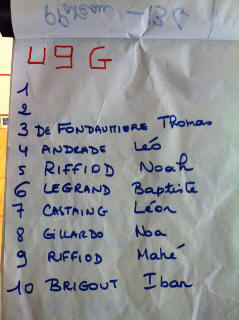 U9 G
1
2
3 DE FONDAUMIERE Thomas
4 ANDRADE Léo
5 RIFFIOD Noah
6 LEGRAND Baptiste
7 CASTAING Léon
8 GILLARDO Noa
9 RIFFIOD Mahé
10 BRIGOUT Iban